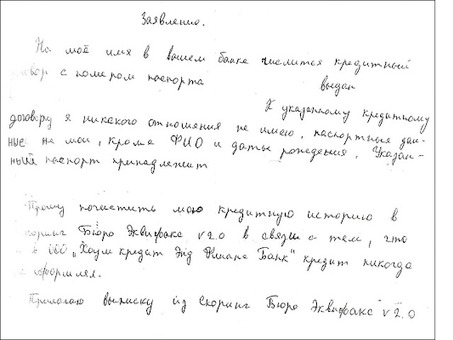 Заявление.
На моё имя в вашем банке числится кредитный
с номером паспорта выдан
К указанному кредитному
договору я никакого отношения не имею, паспортные дан-
ные не мои, кроме ФИО и даты рождения. Указан-
ный паспорт принадлежит
Прошу почистить мою кредитную историю в
Бюро Эквифакс v2.0 в связи с тем, что
в ООО „Хоум кредит Энд Финанс Банк" кредит никогда
оформлял.
Прилагаю выписку из Скоринг Бюро Эквифакс v2.0